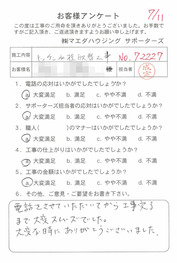 お客様アンケート
7/11
この度は工事のご用命を頂きありがとうございました。お手数で
すがご記入頂き、ご返送頂きますようお願い申し上げます。
㈱マエダハウジング サポーターズ
施工内容
トイレ改修工事
No.72227
お客様名
様
担当者
1. 電話の応対はいかがでしたでしょうか?
a. 大変満足 b. 満足 c. やや不満 d. 不満
2. サポーターズ担当者の応対はいかがでしたでしょうか?
a. 大変満足 b. 満足 c. やや不満 d. 不満
3. 職人( )のマナーはいかがでしたでしょうか?
a. 大変満足 b. 満足 c. やや不満 d. 不満
4. 工事の仕上がりはいかがでしたでしょうか?
a. 大変満足 b. 満足 c. やや不満 d. 不満
5. 工事の金額はいかがでしたでしょうか?
a. 大変満足 b. 満足 c. やや不満 d. 不満
6. その他、ご意見・ご要望をお書き下さい。
電話をさせていただいてから工事完了
まで大変スムーズでした。
大変な時にありがとうございました。